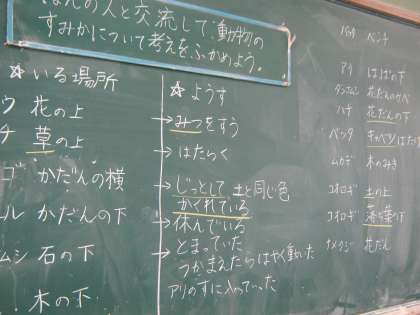 はんの人と交流して、動物の
すみかについて考えをふかめよう。
☆いる場所
ウ 花の上
チ 草の上
ゴ かだんの横
ル かだんの下
ムシ 石の下
木の下
☆ようす
→みつをすう
→はたらく
→じっとして 土と同じ色
かくれている
→休んでいる
→とまっていた
つかまえたらはやく動いた
アリのすに入っていった
バッタ ベンチ
アリ はっぱの下
ダンゴムシ 花だんのカベ
ハチ 花だんの下
バッタ キャベツばたけ
ムカデ 木のみき
コオロギ 土の上
コオロギ 落ち葉の下
ナメクジ 花だん